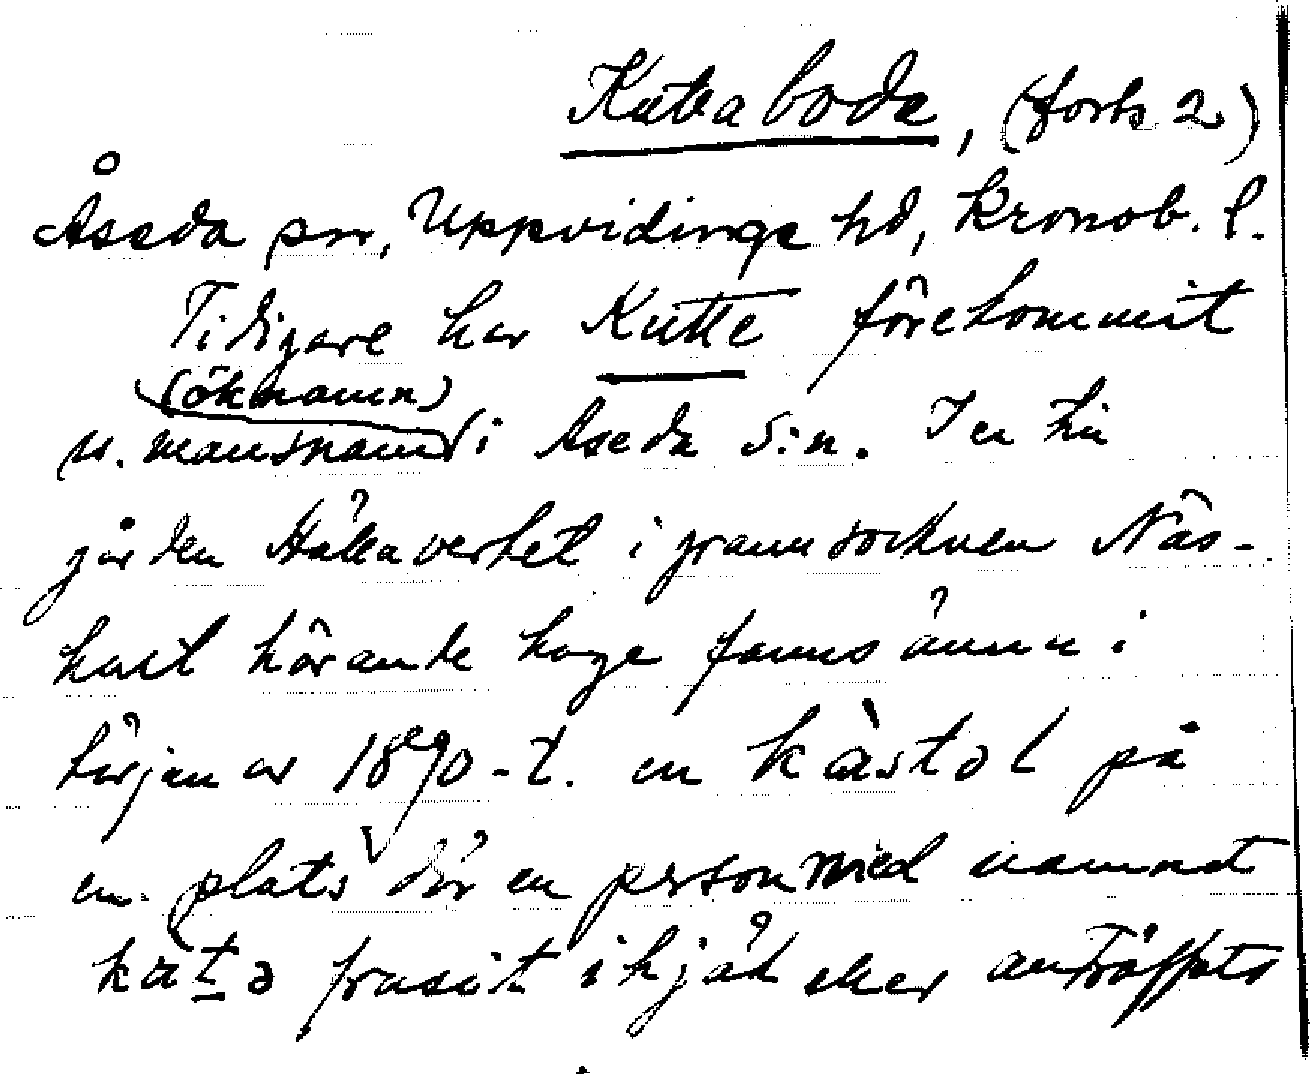 Kuttaboda, (forts 2)
Åseda sn, Uppvidinge hd, Kronob. l.
Tidigare har Kutte förekommit
(öknamn)
ss. mansnamn i Åseda s:n. I en till
gården Hälleverket i grannsocknen Näs-
hult hörande hage fanns ännu i
början av 1890-t. en på
en plats där en person med namnet
frusit ihjäl eller anträffats